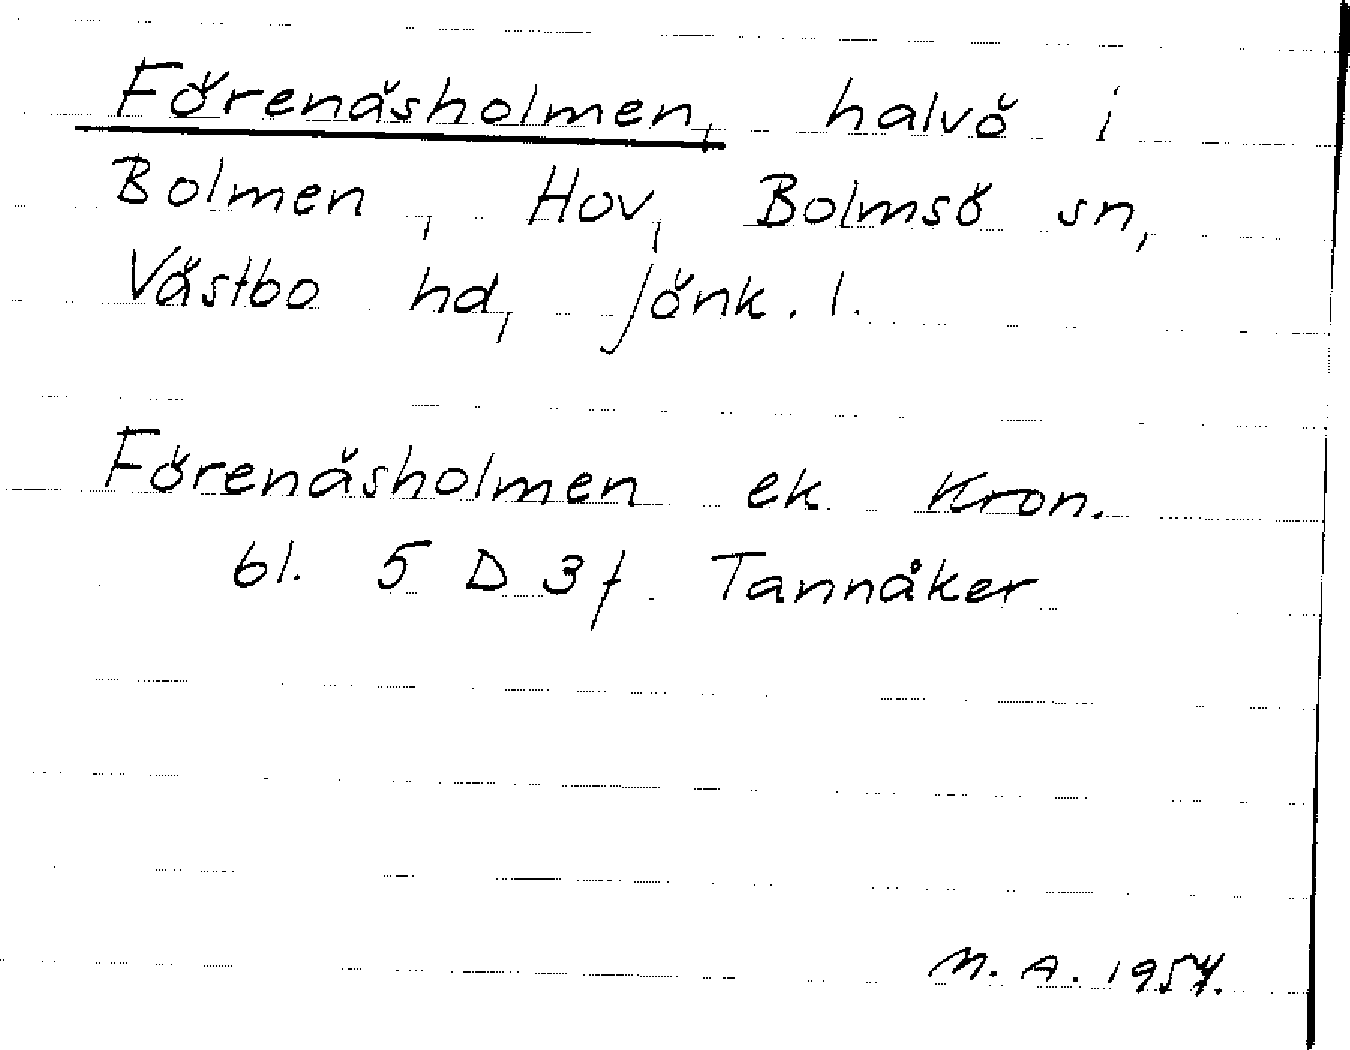 Förenäsholmen, halvö i
Bolmen, Hov, Bolmsö sn,
Västbo hd, Jönk. l.
Förenäsholmen ek. Kron.
bl. 5 D 3f. Tannåker
N. A. 1957.